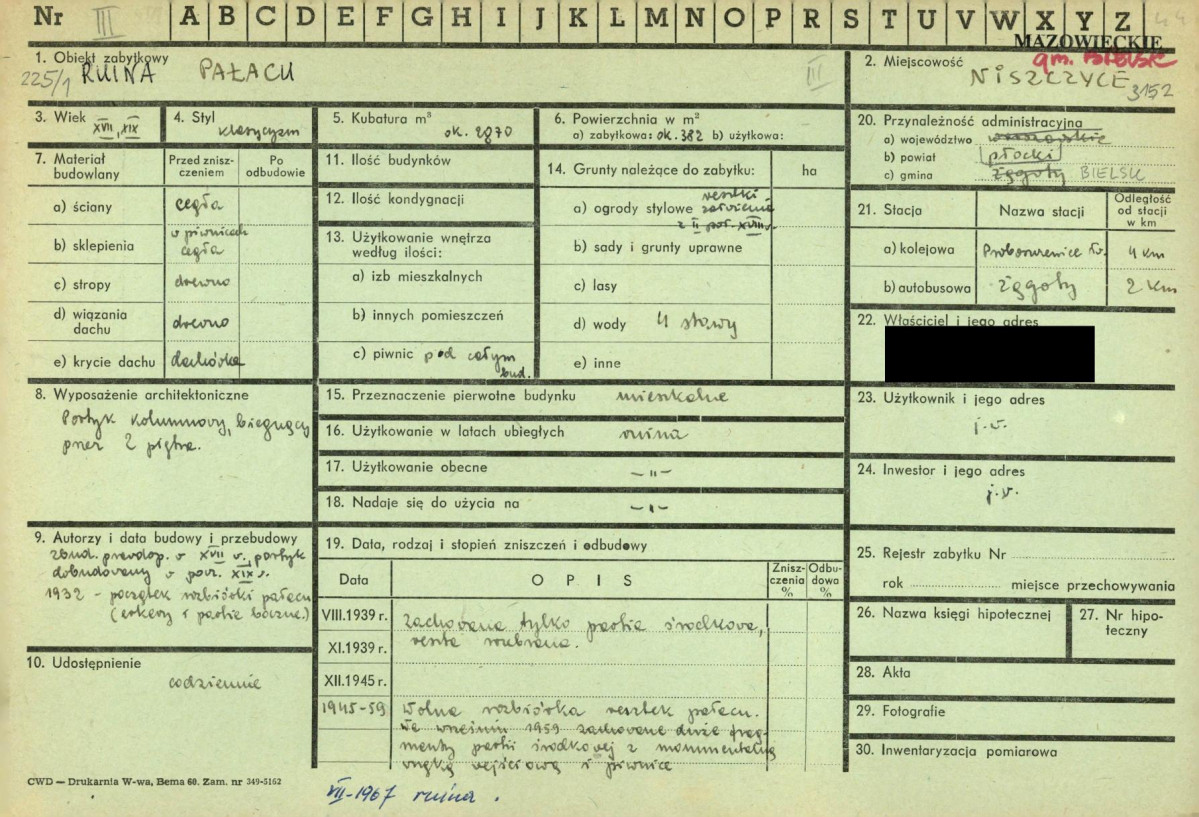 Nr III A B C D E F G H I J K L M N O P R S T U V W X Y Z 44
MAZOWIECKIE
1. Obiekt zabytkowy
225/1 RUINA PAŁACU III
2. Miejscowość gm. BIELSK
NISZCZYCE 3152
3. Wiek XVII, XIX
4. Styl klasycyzm
5. Kubatura m³ ok. 2870
6. Powierzchnia w m²
a) zabytkowa: ok. 382 b) użytkowa:
20. Przynależność administracyjna
a) województwo warszawskie
b) powiat płocki
c) gmina Zągoty BIELSK
7. Materiał budowlany
Przed zniszczeniem
Po odbudowie
a) ściany cegła
b) sklepienia w piwnicach cegła
c) stropy drewno
d) wiązania dachu drewno
e) krycie dachu dachówka
11. Ilość budynków
12. Ilość kondygnacji
13. Użytkowanie wnętrza
według ilości:
a) izb mieszkalnych
b) innych pomieszczeń
c) piwnic pod całym
bud.
14. Grunty należące do zabytku: ha
a) ogrody stylowe resztki założenia
z II poł. XVIII w.
b) sady i grunty uprawne
c) lasy
d) wody 4 stawy
e) inne
21. Stacja Nazwa stacji Odległość od stacji w km
a) kolejowa Proboszczewice 4 km
b) autobusowa Zągoty 2 km
22. Właściciel i jego adres
8. Wyposażenie architektoniczne
Portyk kolumnowy, biegnący
przez 2 piętra.
15. Przeznaczenie pierwotne budynku mieszkalne
16. Użytkowanie w latach ubiegłych ruina
17. Użytkowanie obecne — " —
18. Nadaje się do użycia na — " —
23. Użytkownik i jego adres
j.w.
24. Inwestor i jego adres
j.w.
9. Autorzy i data budowy i przebudowy
zbud. prawdop. w XVII w., portyk
dobudowany w pocz. XIX w.
1932 - początek rozbiórki pałacu
(erkery i partie boczne.)
10. Udostępnienie
codziennie
19. Data, rodzaj i stopień zniszczeń i odbudowy
Data OPIS Zniszczenia % Odbudowa %
VIII.1939 r. Zachowana tylko partia środkowa,
reszta rozebrana.
XI.1939 r.
XII.1945 r.
1945-59 Wolna rozbiórka resztek pałacu.
We wrześniu 1959 zachowane duże frag-
menty partii środkowej z monumentalną
wnęką wejściową i piwnice
25. Rejestr zabytku Nr
rok miejsce przechowywania
26. Nazwa księgi hipotecznej
27. Nr hipoteczny
28. Akta
29. Fotografie
30. Inwentaryzacja pomiarowa
CWD — Drukarnia W-wa, Bema 60. Zam. nr 349-5162
VII-1967 ruina.